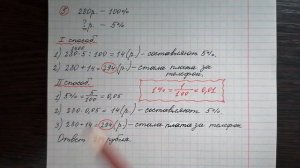 ⑤ 280р. - 100%
? р. - 5%
I способ
1) 280·5 : 100 = 14 (р.) - составляют 5%.
2) 280 + 14 = 294 (р.) - стала плата за
телефон.
II способ
1) 5% = 5/100 = 0,05
1% = 1/100 = 0,01
2) 280·0,05 = 14 (р.) - составляют 5%
3) 280 + 14 = 294 (р.) - стала плата за телефон
Ответ рубля